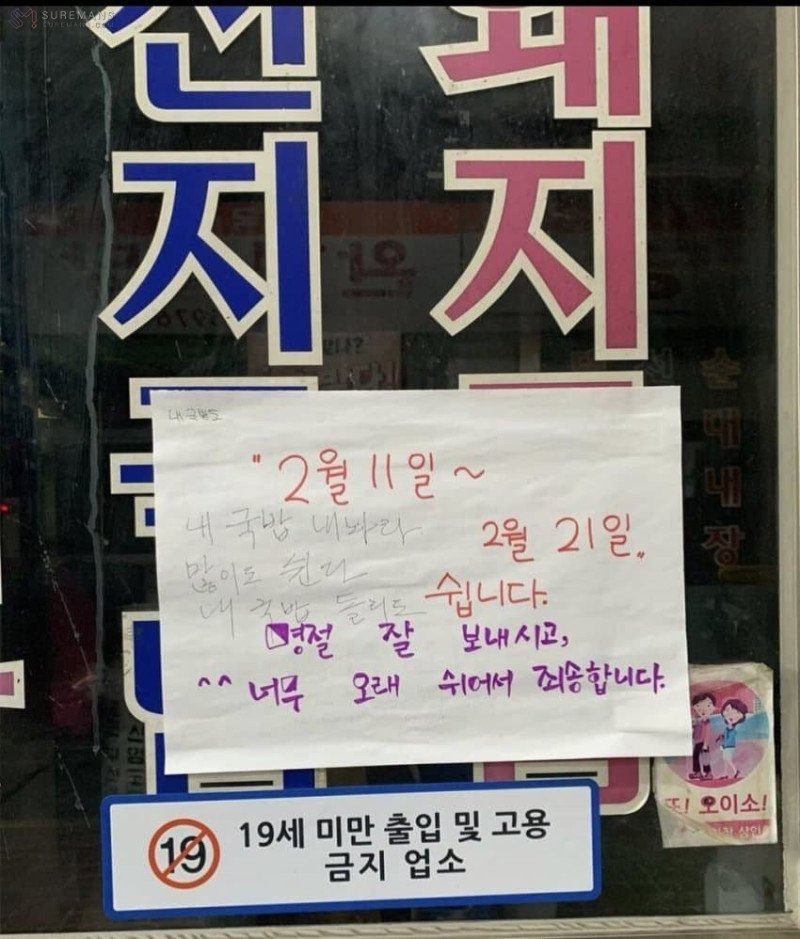 SUREMANG
선 돼
지 지
내 국밥도
" 2월 11일 ~
2월 21일 "
쉽니다.
내 국밥 내놔라
많이도 쉰다
내 국밥 돌리도
명절 잘 보내시고,
^^ 너무 오래 쉬어서 죄송합니다.
순대내장
또! 오이소!
19 19세 미만 출입 및 고용
금지 업소